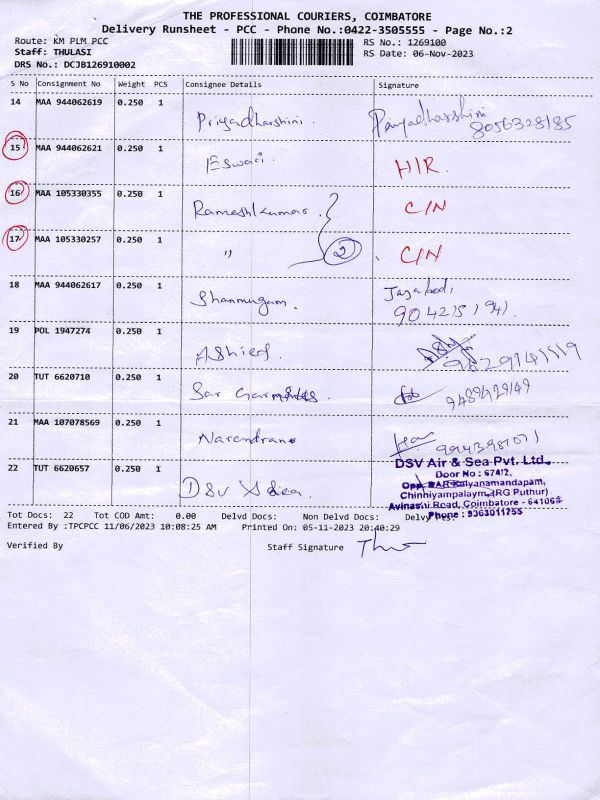 THE PROFESSIONAL COURIERS, COIMBATORE
Delivery Runsheet - PCC - Phone No.:0422-3505555 - Page No.:2
Route: KM PLM PCC
RS No.: 1269100
Staff: THULASI
RS Date: 06-Nov-2023
DRS No.: DCJB126910002
S No Consignment No Weight PCS Consignee Details Signature
14 MAA 944062619 0.250 1 Priyadharshini. Priyadharshini
8056328185
15 MAA 944062621 0.250 1 Eswari. H/R.
16 MAA 105330355 0.250 1 Rameshkumar. C/N
17 MAA 105330257 0.250 1 " 2 C/N
18 MAA 944062617 0.250 1 Shanmugam.
19 POL 1947274 0.250 1
20 TUT 6620710 0.250 1 Sar Garments. 9489429149
21 MAA 107078569 0.250 1 Narendran
22 TUT 6620657 0.250 1 DSV & Sea.
DSV Air & Sea Pvt. Ltd.
Door No : 674/2,
Opp. BAR Kalyanamandapam,
Chinniyampalaym (RG Puthur)
Avinashi Road, Coimbatore - 641062
Phone : 9363011755
Tot Docs: 22 Tot COD Amt: 0.00 Delvd Docs: Non Delvd Docs: Delvy Pct:
Entered By :TPCPCC 11/06/2023 10:08:25 AM Printed On: 05-11-2023 20:40:29
Verified By Staff Signature